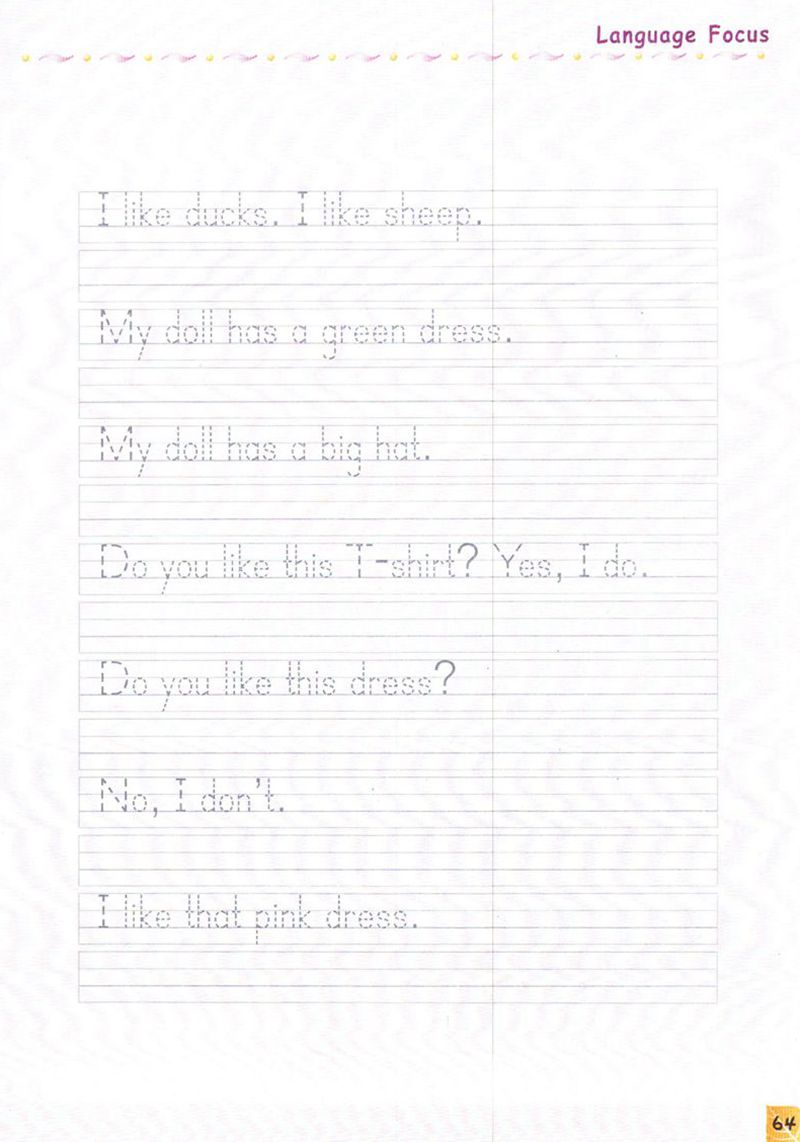 Language Focus
I like ducks. I like sheep.
My doll has a green dress.
My doll has a big hat.
Do you like this T-shirt? Yes, I do.
Do you like this dress?
No, I don't.
I like that pink dress.
64